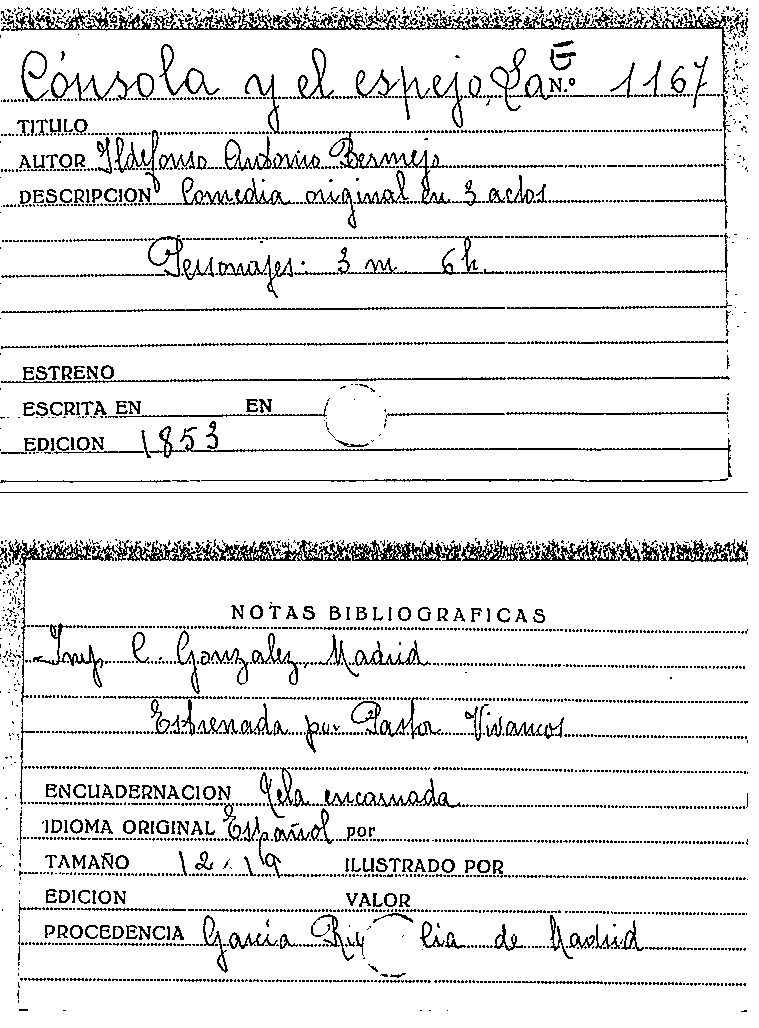 Cónsola y el espejo, La E N.º 1167
TITULO
AUTOR Ildefonso Antonio Bermejo
DESCRIPCION Comedia original en 3 actos
Personajes: 3 m 6 h.
ESTRENO
ESCRITA EN EN
EDICION 1853
NOTAS BIBLIOGRAFICAS
Imp C. Gonzalez, Madrid
Estrenada por Pastor Vivancos
ENCUADERNACION Tela encarnada
IDIOMA ORIGINAL Español por
TAMAÑO 12 . 19 ILUSTRADO POR
EDICION VALOR
PROCEDENCIA Garcia de Madrid